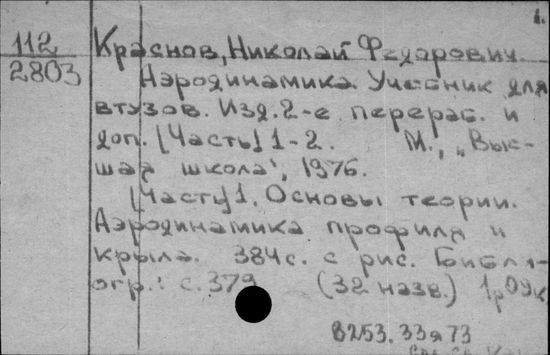 1.
112
2803
Краснов, Николай Федорович.
Аэродинамика. Учебник для
втузов. Изд. 2-е перераб. и
доп. [Часть] 1-2. М., "Выс-
шая школа", 1976.
[Часть] 1. Основы теории.
Аэродинамика профиля и
крыла. 384 с. с рис. Библи-
огр.: с. 379 (32 назв.) 1р09к
В253.33я73